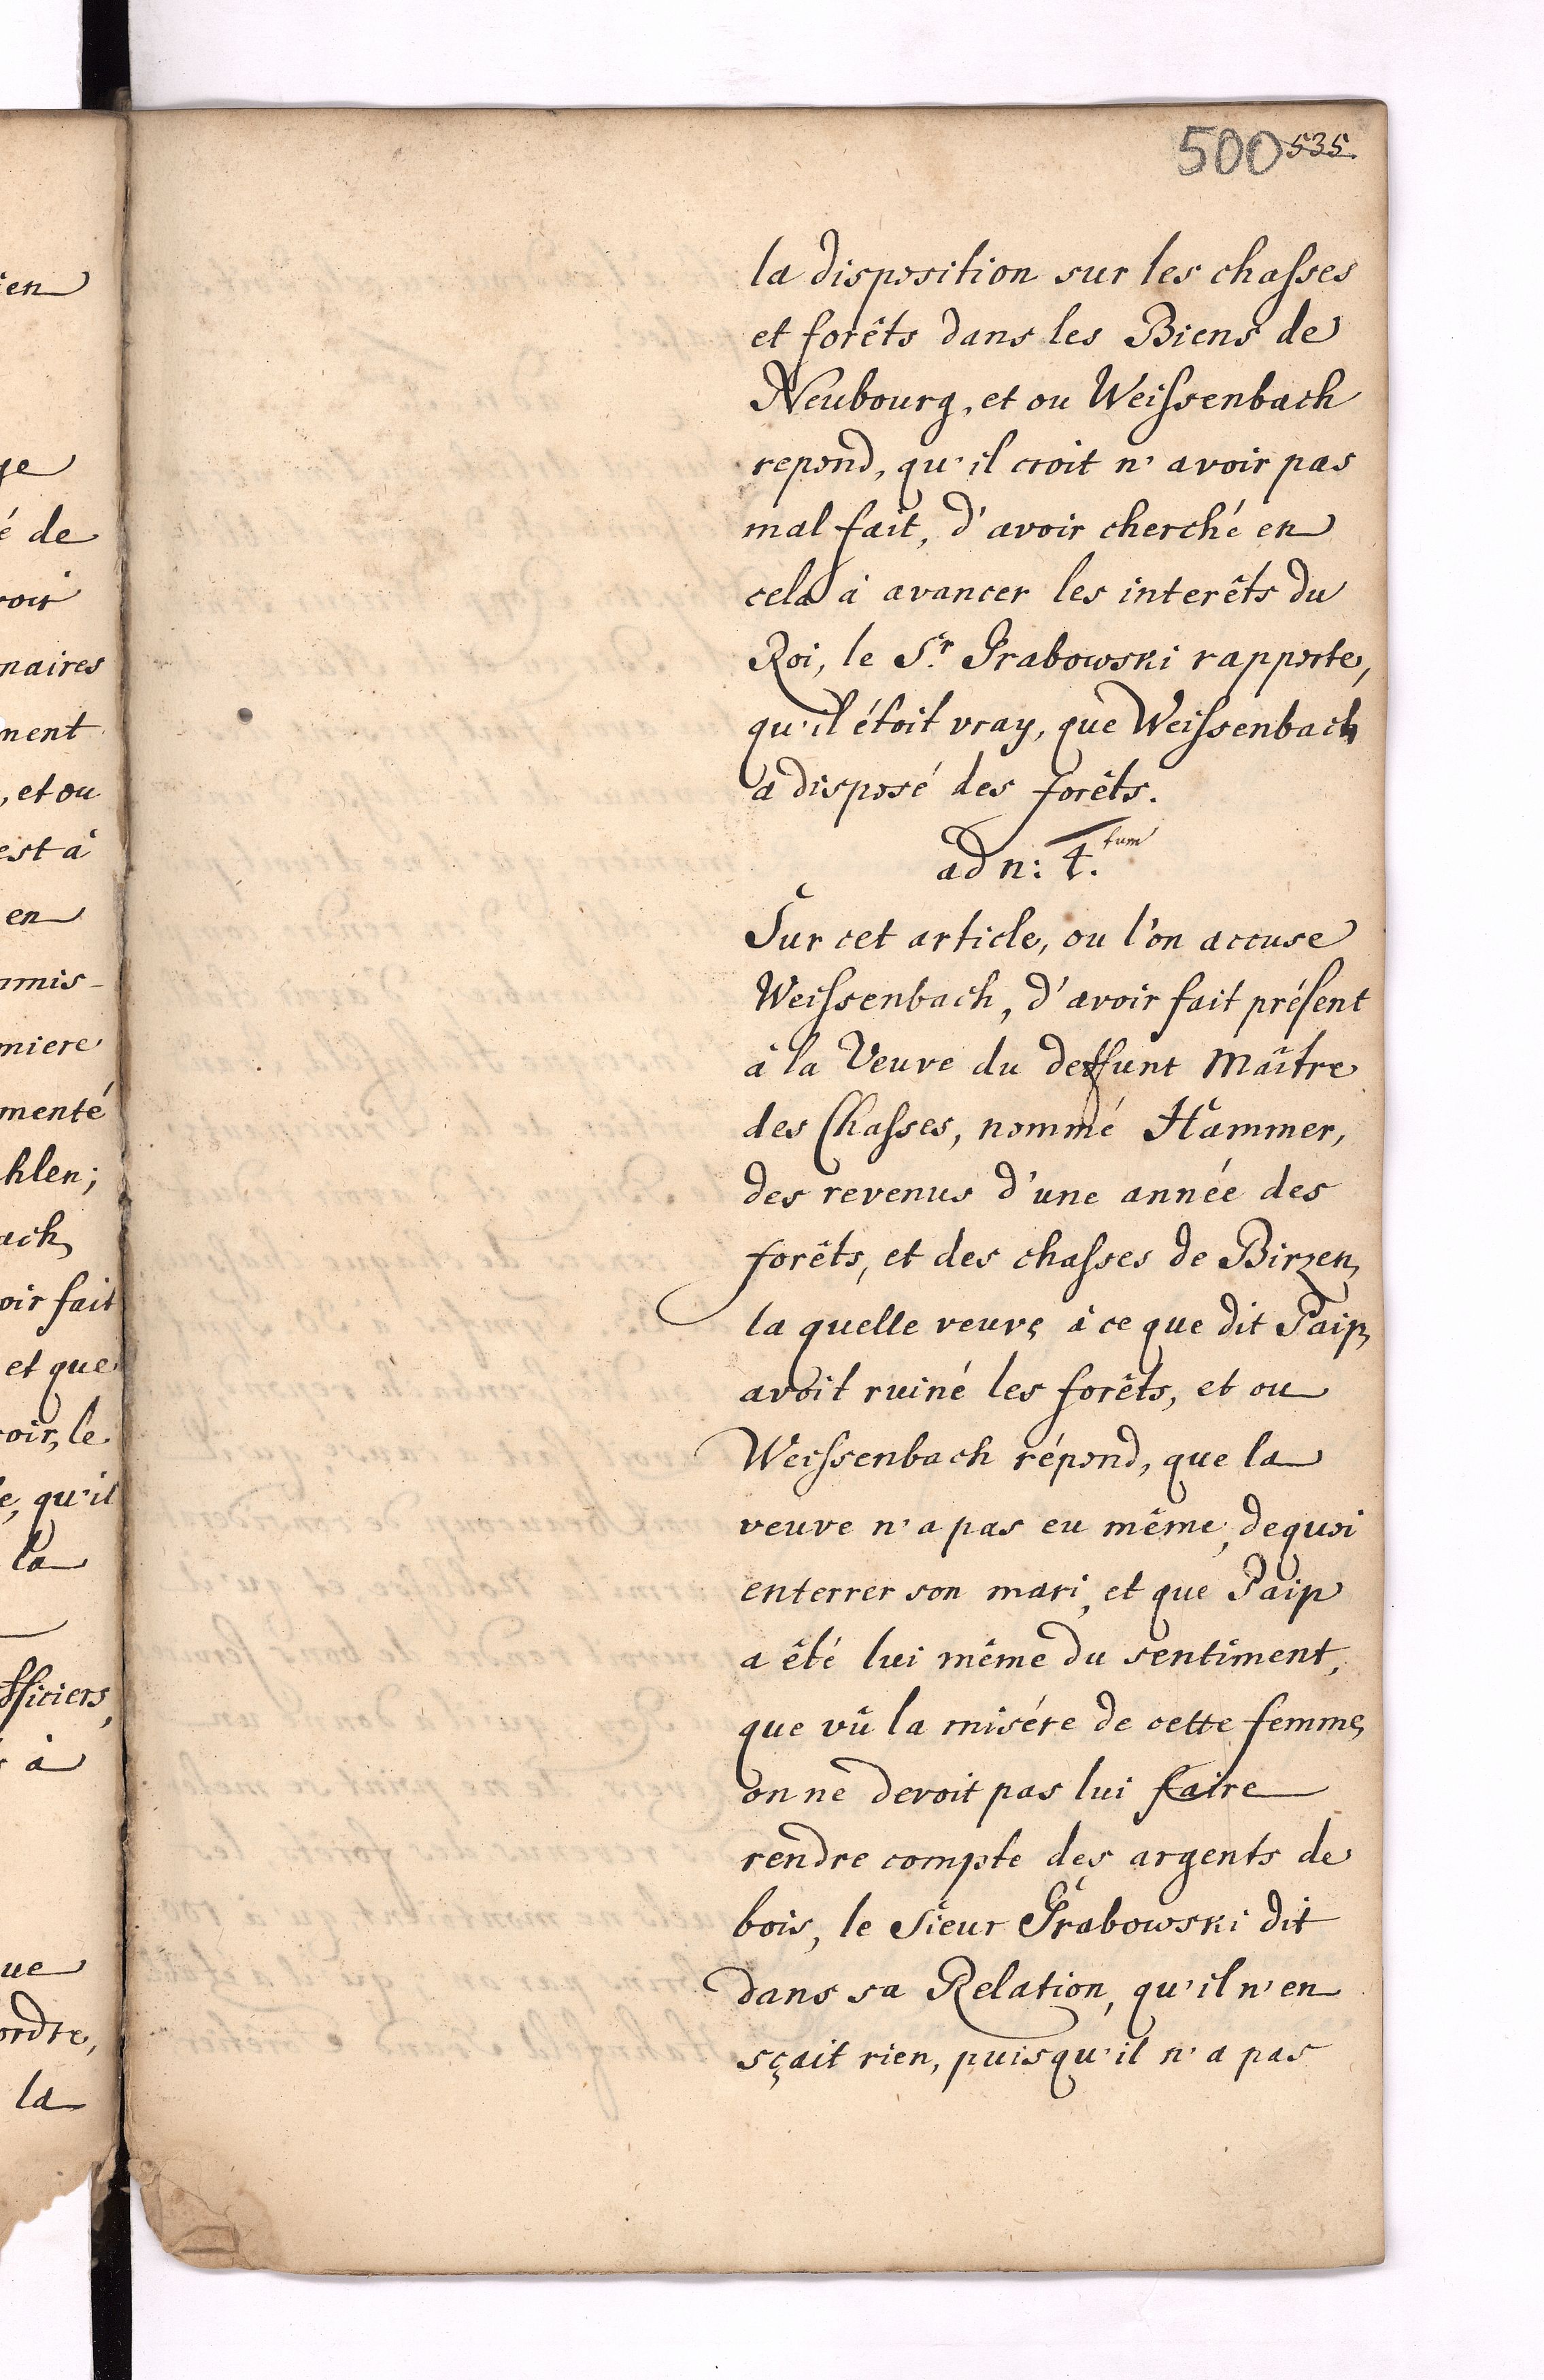 500 535.
la disposition sur les chasses
et forêts dans les Biens de
Neubourg, et ou Weissenbach
repond, qu'il croit n'avoir pas
mal fait, d'avoir cherché en
cela à avancer les interêts du
Roi, le Sr. Grabowski rapporte,
qu'il étoit vray, que Weissenbach
a disposé des forêts.
ad n: 4.tum
Sur cet article, ou l'on accuse
Weissenbach, d'avoir fait présent
à la Veuve du deffunt Maître
des Chasses, nommé Hammer,
des revenus d'une année des
forêts, et des chasses de Birzen,
la quelle veuve, à ce que dit Paip,
avoit ruiné les forêts, et ou
Weissenbach répond, que la
veuve n'a pas eu même, dequoi
enterrer son mari, et que Paip
a été lui même du sentiment,
que vû la misére de cette femme,
on ne devoit pas lui faire
rendre compte des argents de
bois, le Sieur Grabowski dit
dans sa Relation, qu'il n'en
sçait rien, puisqu'il n'a pas
ien
ge
é de
voir
naires
ment
, et ou
est à
en
mmis-
miere
menté
hlen;
ach
oir fait
et que
voir, le
e, qu'il
la
fficiers,
à
ue
ordre,
la